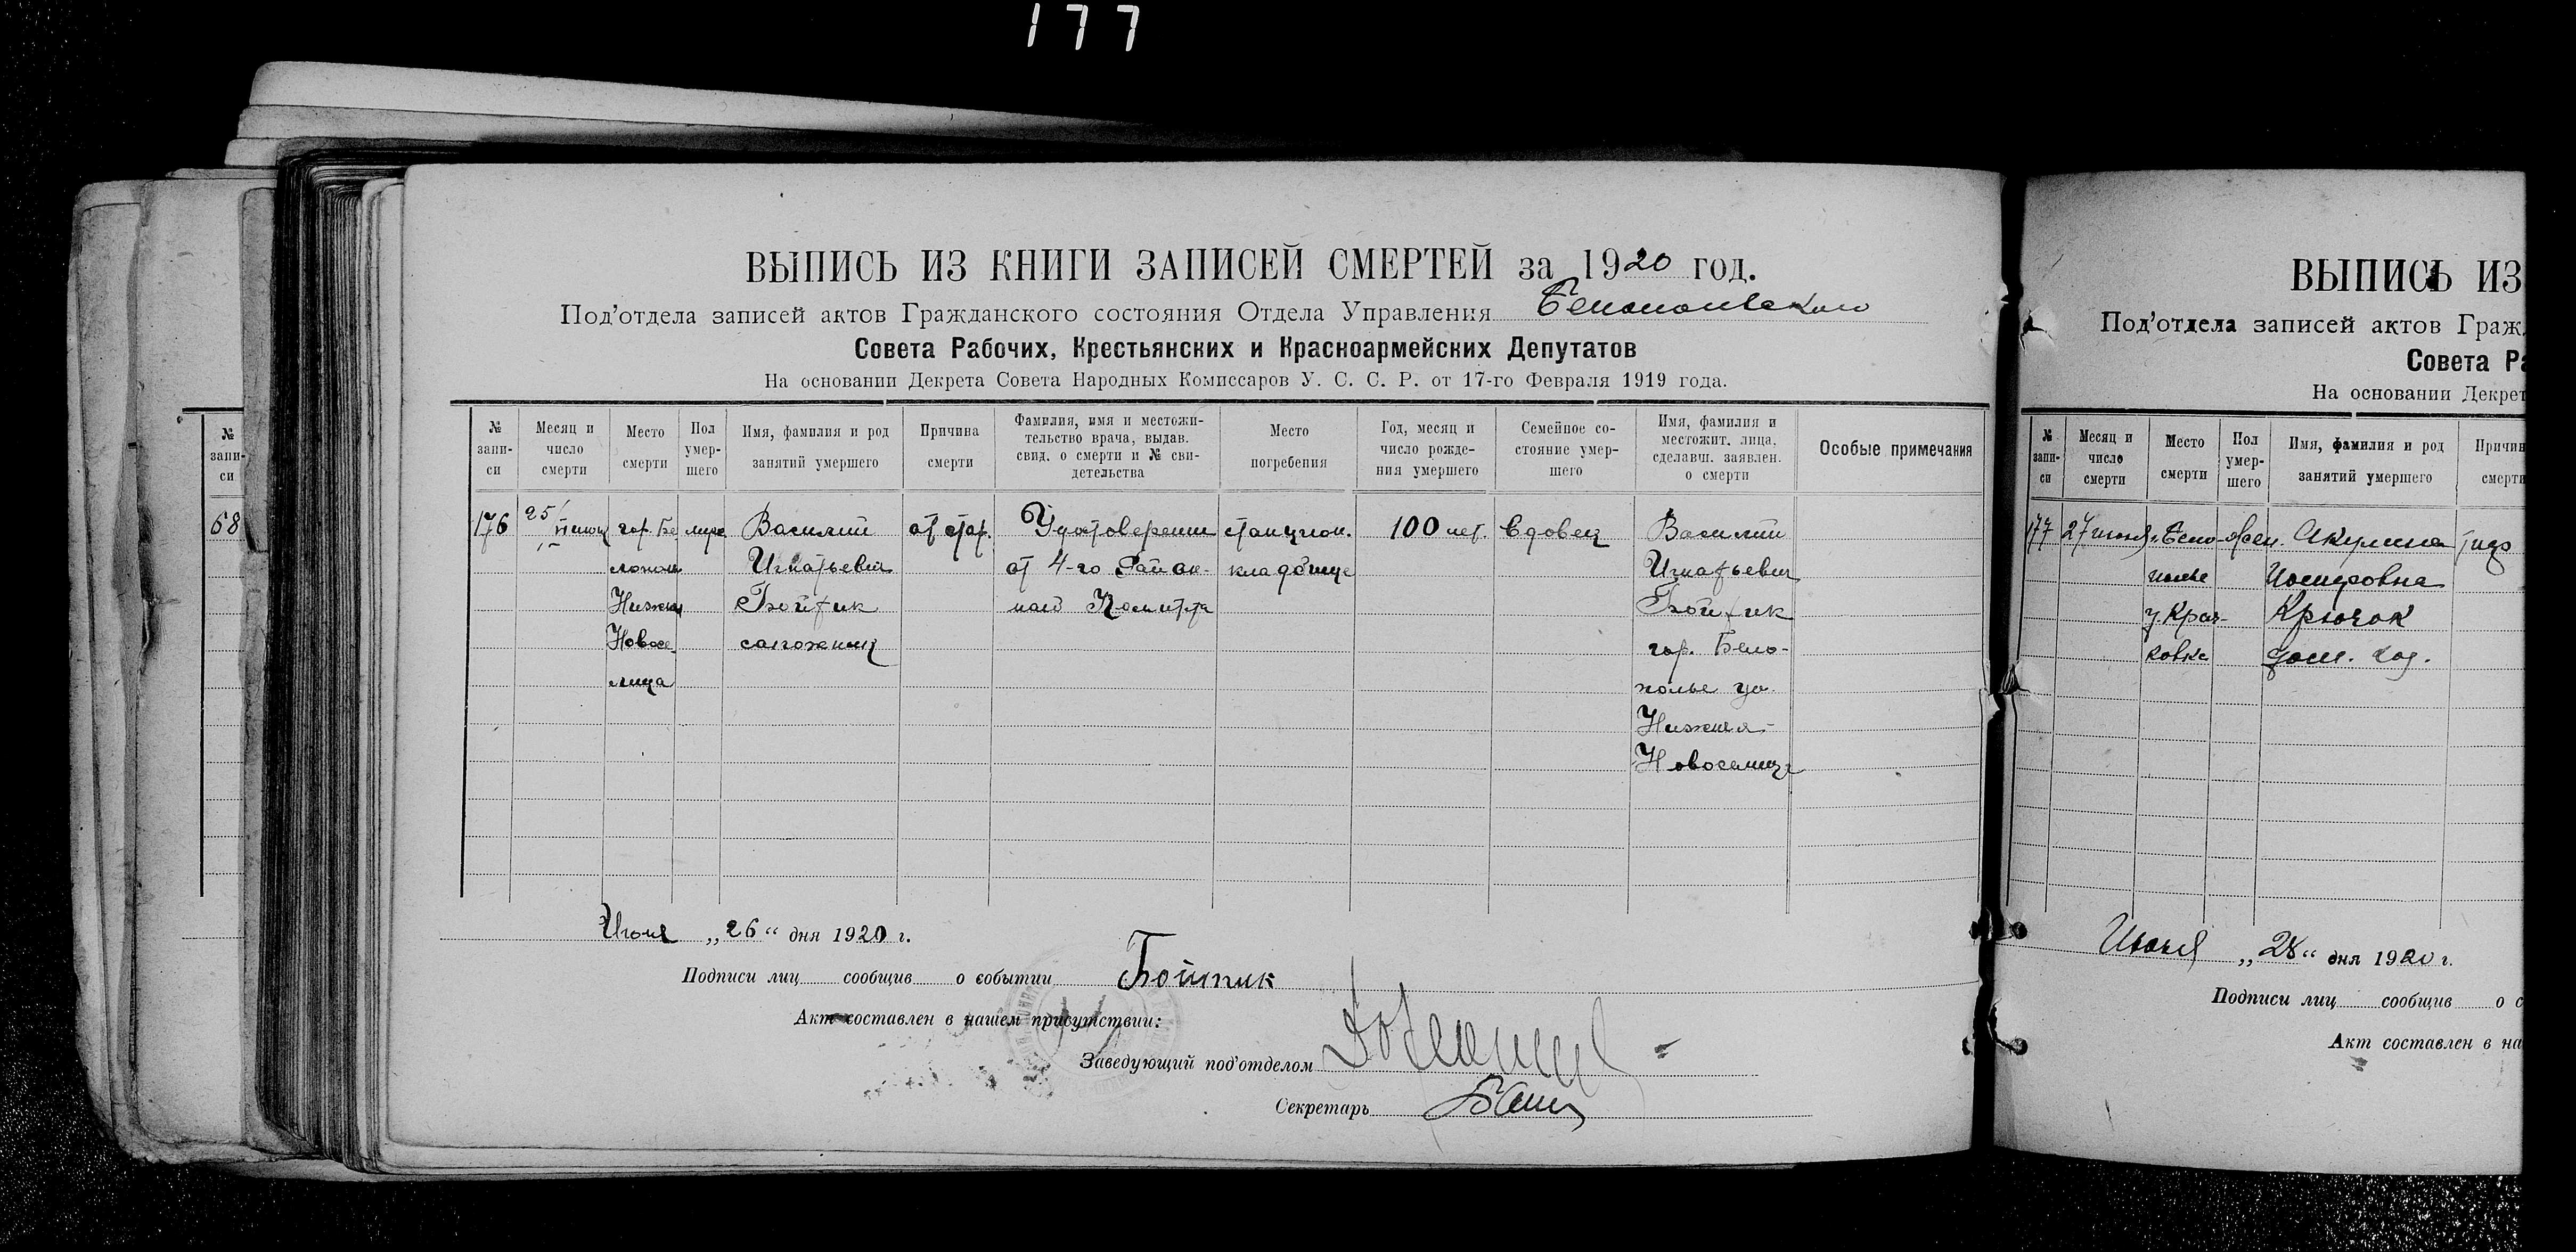 177
ВЫПИСЬ ИЗ КНИГИ ЗАПИСЕЙ СМЕРТЕЙ за 1920 год.
Под'отдела записей актов Гражданского состояния Отдела Управления Белопольского
Совета Рабочих, Крестьянских и Красноармейских Депутатов
На основании Декрета Совета Народных Комиссаров У. С. С. Р. от 17-го Февраля 1919 года.
№ запи- си
Месяц и число смерти
Место смерти
Пол умер- шего
Имя, фамилия и род занятий умершего
Причина смерти
Фамилия, имя и местожи- тельство врача, выдав. свид. о смерти и № сви- детельства
Место погребения
Год, месяц и число рожде- ния умершего
Семейное со- стояние умер- шего
Имя, фамилия и местожит. лица, сделавш. заявлен. о смерти
Особые примечания
176 25 гор. Бе Василий от стар. Удостоверение станцион. 100 лет. Вдовец Василий
Игнатьевич от 4-го Район- кладбище Игнатьевич
Нижняя Бойтик Бойтик
Новосе сапожник гор. Бело-
лица полье ул.
Нижняя-
Новоселица
Июня „26“ дня 1920 г.
Подписи лиц сообщив о событии Бойтик
Акт составлен в нашем присутствии:
Заведующий под'отделом
Секретарь
№ запи- си
68
ВЫПИСЬ ИЗ
Под'отдела записей актов Граж
Совета Ра
На основании Декрет
№ запи- си
Месяц и число смерти
Место смерти
Пол умер- шего
Имя, фамилия и род занятий умершего
Причин смерти
177 27 июня Бело- жен. Акулина
полье
Крючок
Июня „28“ дня 1920 г.
Подписи лиц сообщив о с
Акт составлен в на